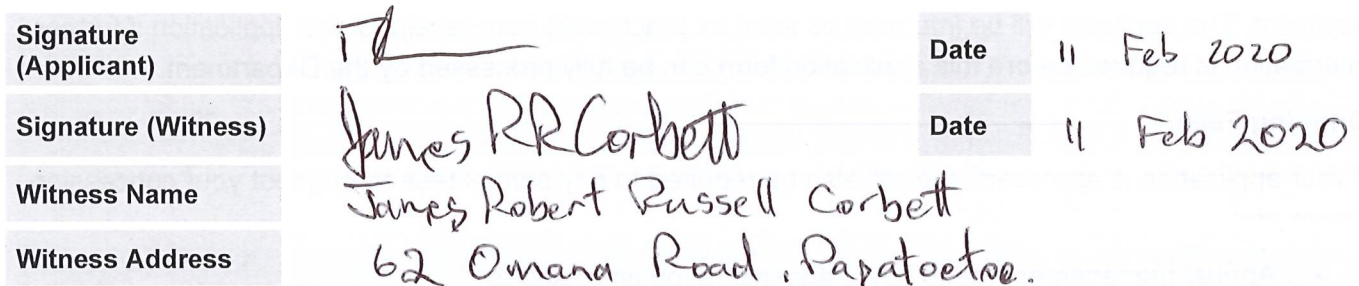 Signature
(Applicant)
Date 11 Feb 2020
Signature (Witness) James RR Corbett Date 11 Feb 2020
Witness Name James Robert Russell Corbett
Witness Address 62 Omana Road, Papatoetoe.